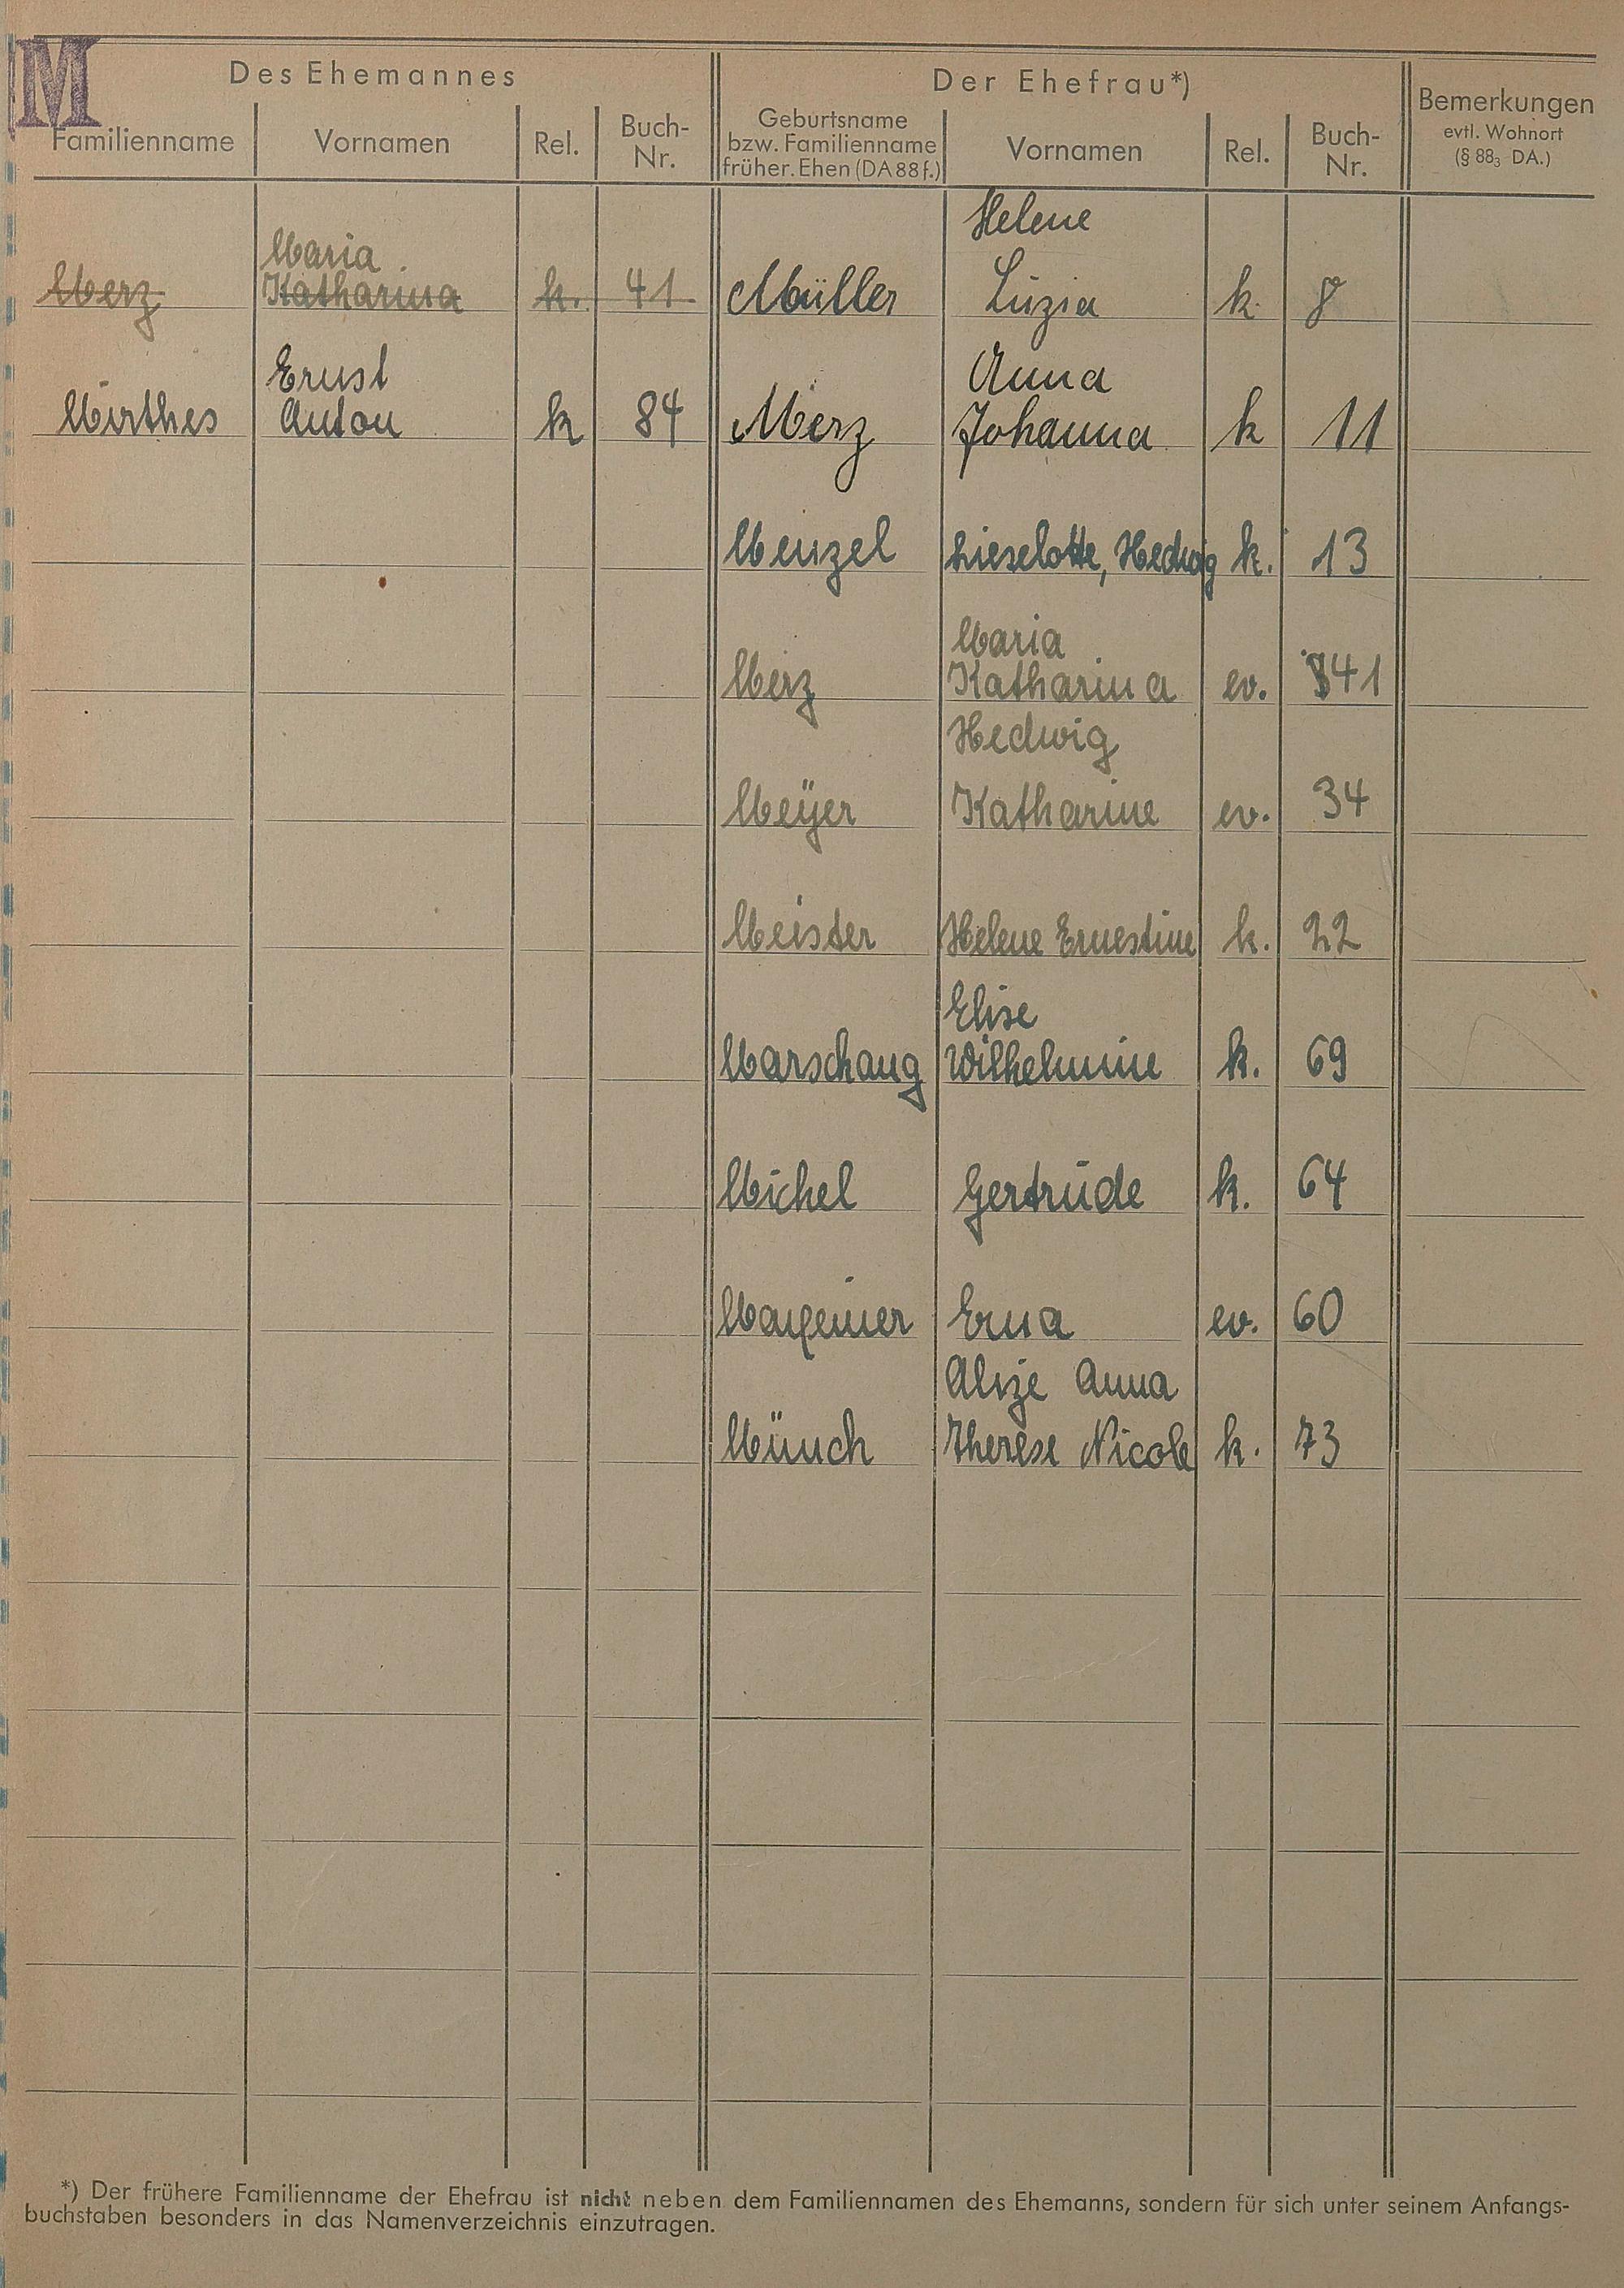 M
Des Ehemannes
Der Ehefrau*)
Bemerkungen
evtl. Wohnort
(§ 88₃ DA.)
Familienname
Vornamen
Rel.
Buch-
Nr.
Geburtsname
bzw. Familienname
früher. Ehen (DA 88 f.)
Vornamen
Rel.
Buch-
Nr.
Helene
Maria
Merz Katharina k. 41 Müller Luzia k. 8
Ernst Anna
Mirthes Anton k 84 Merz Johanna k 11
Menzel Lieselotte, Hedwig k. 13
Maria
Merz Katharina ev. 41
Hedwig
Meÿer Katharine ev. 34
Meister Helene Ernestine k. 22
Elise
Marschang Wilhelmine k. 69
Michel Gertrude k. 64
Erna ev. 60
Alize Anna
Münch Therese Nicole k. 73
*) Der frühere Familienname der Ehefrau ist nicht neben dem Familiennamen des Ehemanns, sondern für sich unter seinem Anfangs-
buchstaben besonders in das Namenverzeichnis einzutragen.